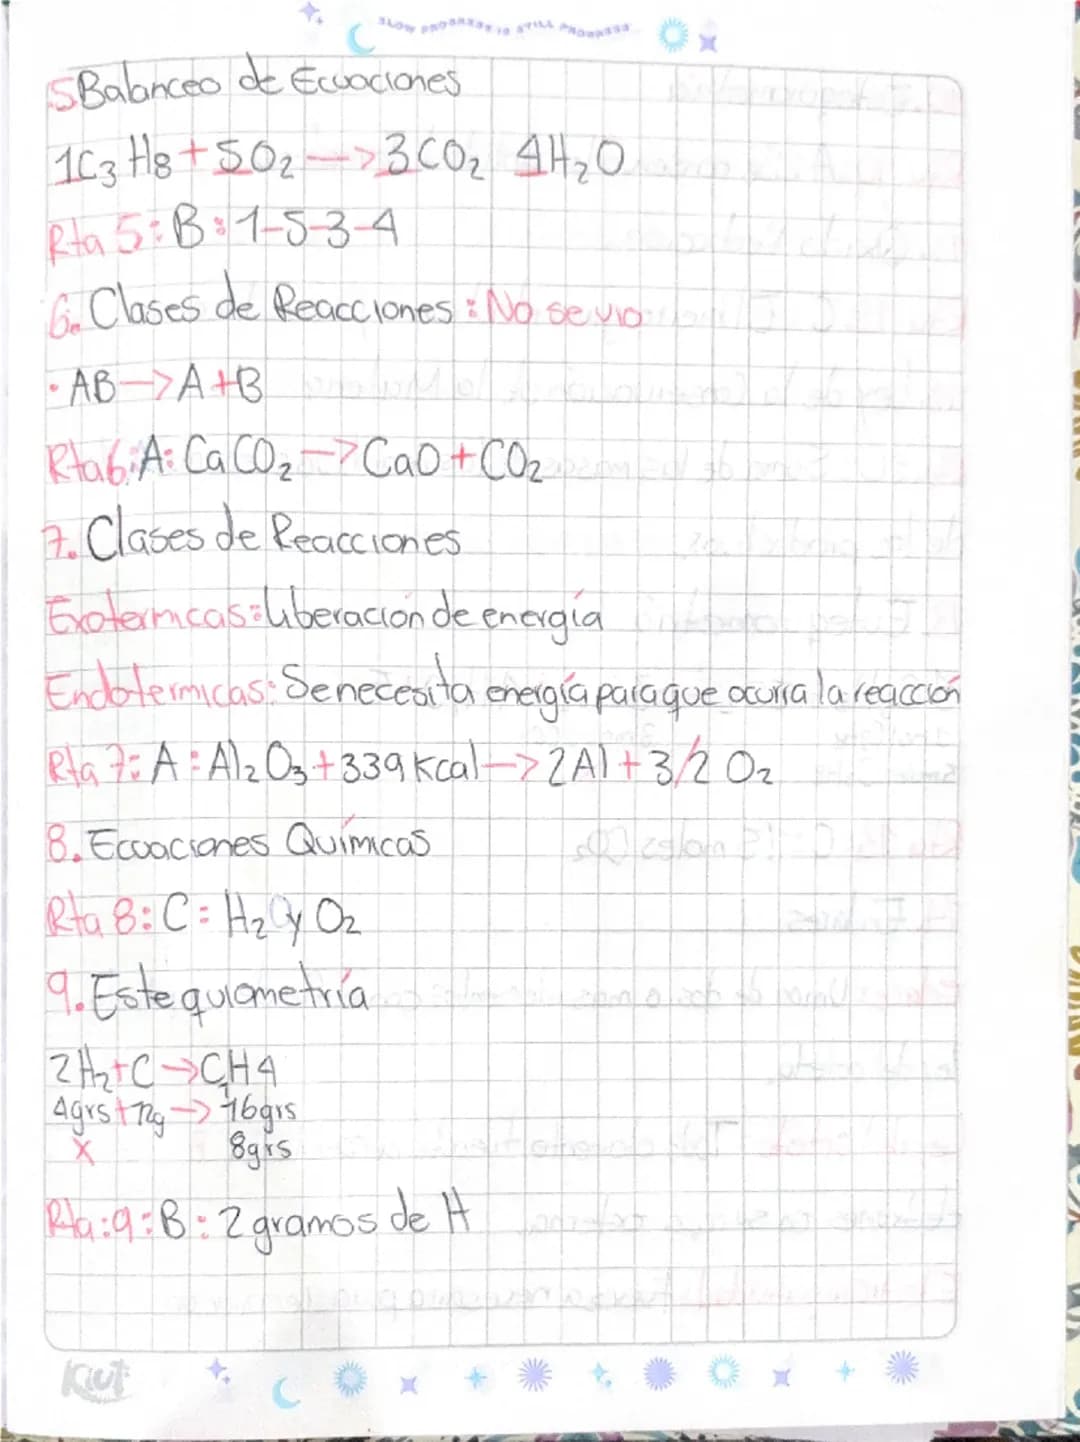 SLOW PROGRESS IS STILL PROGRESS
5 Balanceo de Ecuaciones
1C₃H₈ + 5O₂ —> 3CO₂ 4H₂O
Rta 5: B: 1-5-3-4
6. Clases de Reacciones: No se vio
• AB —> A + B
Rta 6: A: CaCO₂ —> CaO + CO₂
7. Clases de Reacciones
Exotermicas: liberación de energía
Endotermicas: Se necesita energía para que ocurra la reacción
Rta 7: A: Al₂O₃ + 339 Kcal —> 2Al + 3/2 O₂
8. Ecuaciones Químicas
Rta 8: C = H₂O y O₂
9. Estequiometría
2H₂ + C —> CH4
4grs + 12g —> 16grs
X 8grs
Rta: 9: B: 2 gramos de H
Kiut